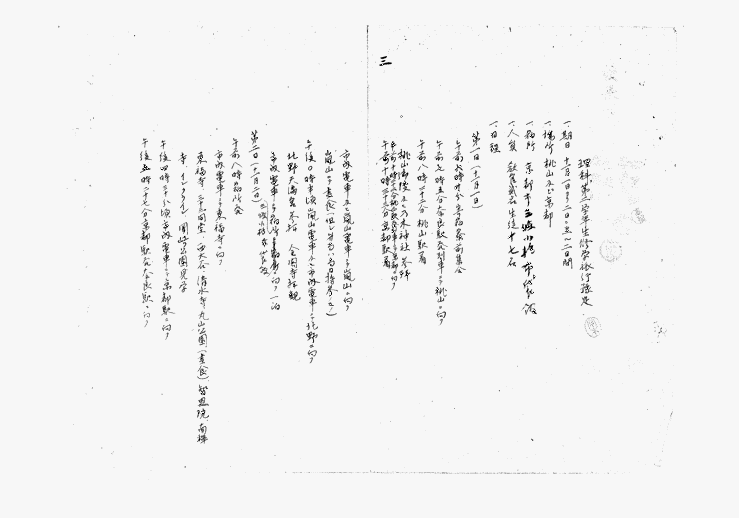 三
理科第二学年生修学旅行予定
一、期日 十一月一日ヨリ二日ニ至ル二日間
一、場所 桃山及ビ京都
一、宿所 京都市三條小橋 布袋館
一、人員 教官弐名 生徒十七名
一、日程
第一日(十一月一日)
午前六時 分 寄宿舎前集合
午前七時五分奈良駅発列車ニテ桃山ニ向フ
午前八時二十三分 桃山駅着
桃山御陵及ビ乃木神社参拝
午前十時 分 京都ニ向フ
午前十時三十三分京都駅着
市街電車及ビ嵐山電車ニテ嵐山ニ向フ
嵐山ニテ昼食(但シ弁当ハ各自持参ノコト)
午後〇時半頃嵐山電車及ビ市街電車ニテ北野ニ向フ
北野天満宮参拝 金閣寺拝観
市街電車ニテ宿所 ニ向フ 一泊
第二日(十一月二日)
午前八時宿所発
市街電車ニテ東福寺ニ向フ
東福寺 三十三間堂 西大谷 清水寺 丸山公園(昼食) 智恩院 南禅
寺 インクライン 岡崎公園見学
午後四時三十分頃市街電車ニテ京都駅ニ向フ
午後五時二十七分京都駅発奈良駅ニ向フ